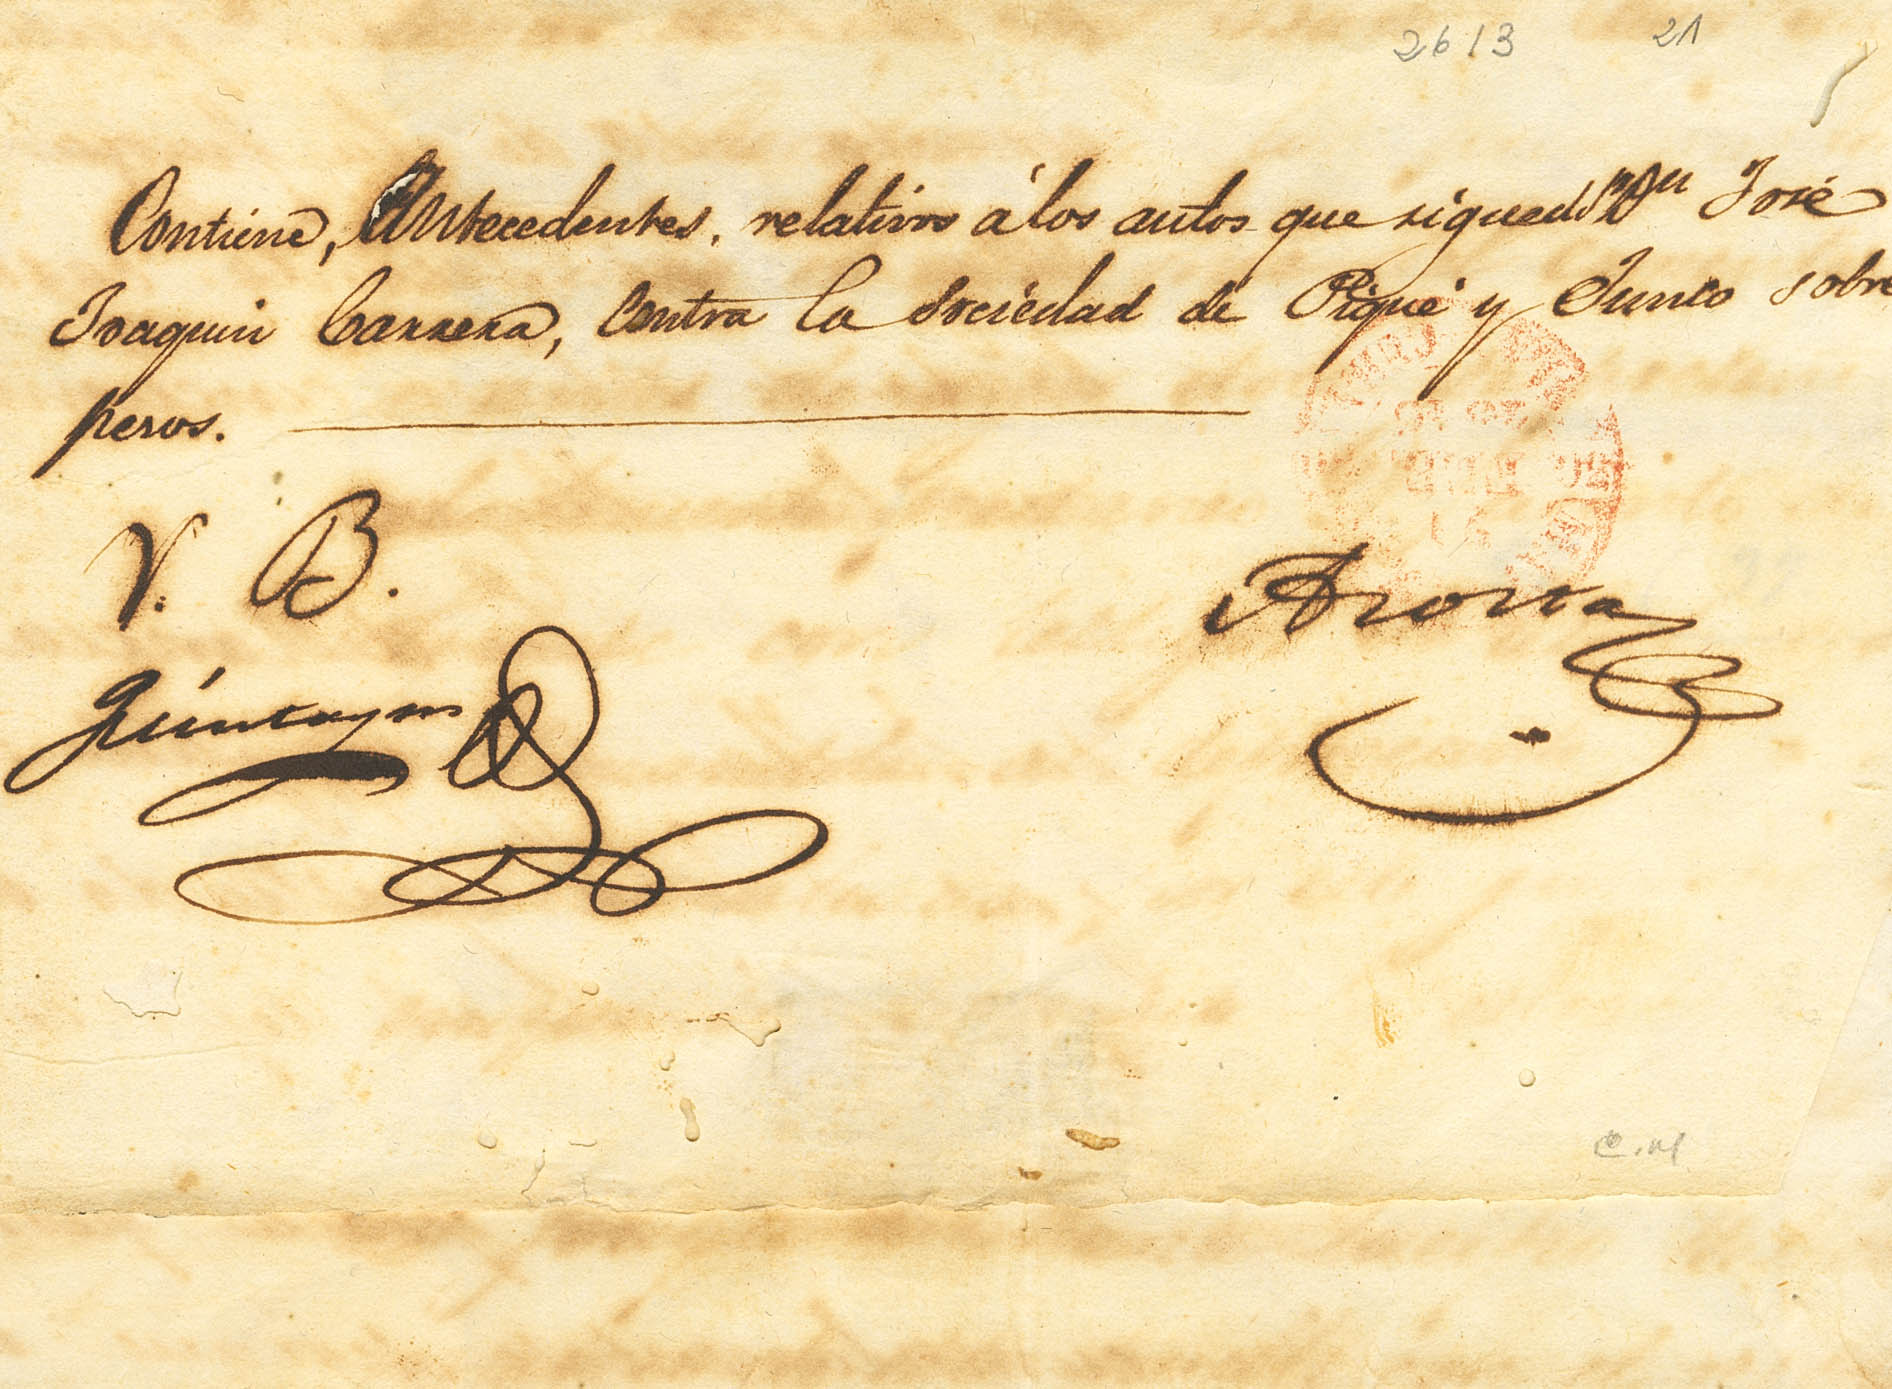 2613 21
Contiene, Antecedentes, relativos á los autos que sigue Dn José
Joaquin Carrera, Contra la Sociedad de Piqué y Junco sobre
pesos.
V. B.
Acosta